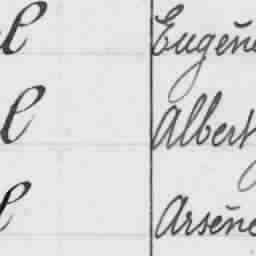 e Eugène
e Albert
e Arsène